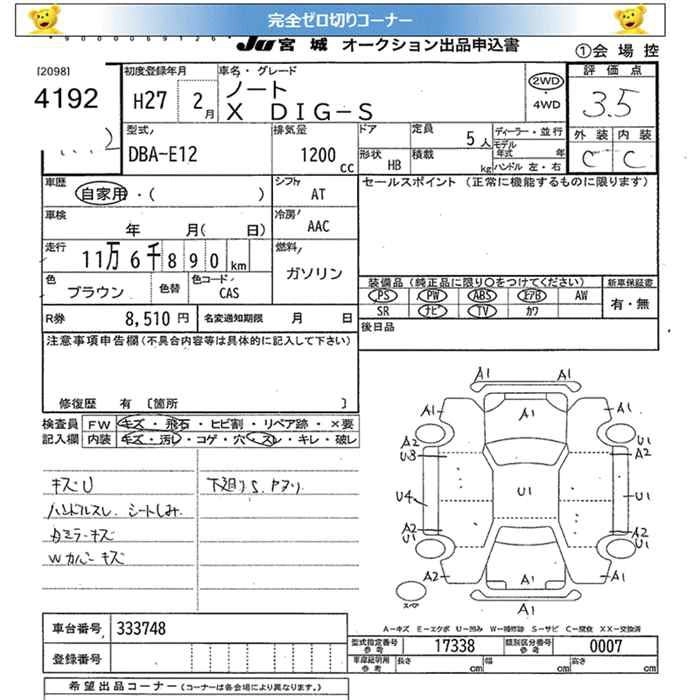 完全ゼロ切りコーナー
JU 宮 城 オークション出品申込書
①会 場 控
[2098]
4192
初度登録年月
H27 2月
車名・グレード
ノート
X DIG-S
2WD
・
4WD
評 価 点
3.5
外 装 内 装
C C
型式
DBA-E12
排気量
1200 cc
ドア
形状 HB
定員 5 人
積載 kg
ディーラー・並行
モデル年式 年
ハンドル 左・右
車歴
自家用・( )
シフト
AT
セールスポイント (正常に機能するものに限ります)
車検
年 月( 日)
冷房
AAC
走行
11万6千890 km
燃料
ガソリン
色
ブラウン
色替
色コード
CAS
装備品(純正品に限り○をつけてください)
PS PW ABS エアB AW
SR ナビ TV カワ
新車保証書
有・無
R券 8,510 円
名変通知期限 月 日
後日品
注意事項申告欄(不具合内容等は具体的に記入して下さい)
修復歴 有 〔箇所 〕
検査員 FW キズ・飛石・ヒビ割・リペア跡・×要
記入欄 内装 キズ・汚レ・コゲ・穴・スレ・キレ・破レ
キズU
ハンドルスレ シートしみ
カミラーキズ
Wカバーキズ
下廻りS.
A1
A1 A1 A1
A2 U1
U3 A2
U4 U1 U1
A2 A2
U1 U1
A2 A1 A2
A1
スペア
A-キズ E-エクボ U-凹み W-補修跡 S-サビ C-腐食 XX-交換済
車台番号 333748
型式指定番号 参考 17338
類別区分番号 参考 0007
登録番号
車庫証明用 参考 長さ cm 幅 cm 高さ cm
希望出品コーナー (コーナーは各会場により異なります。)